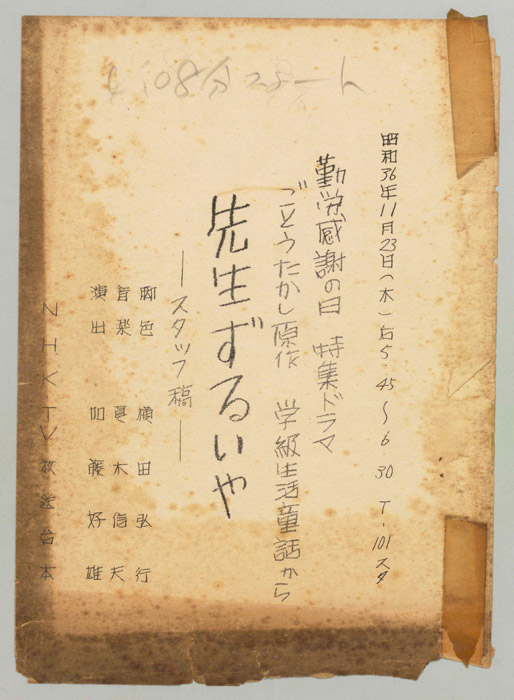 108分スタート
昭和36年11月23日(木)后5.45〜6.30 T-101スタ
勤労感謝の日 特集ドラマ
ごとうたかし原作 学級生活童話から
先生ずるいや
―スタッフ稿―
脚色 横田弘行
音楽 真木信夫
演出 加藤好雄
NHKTV放送台本